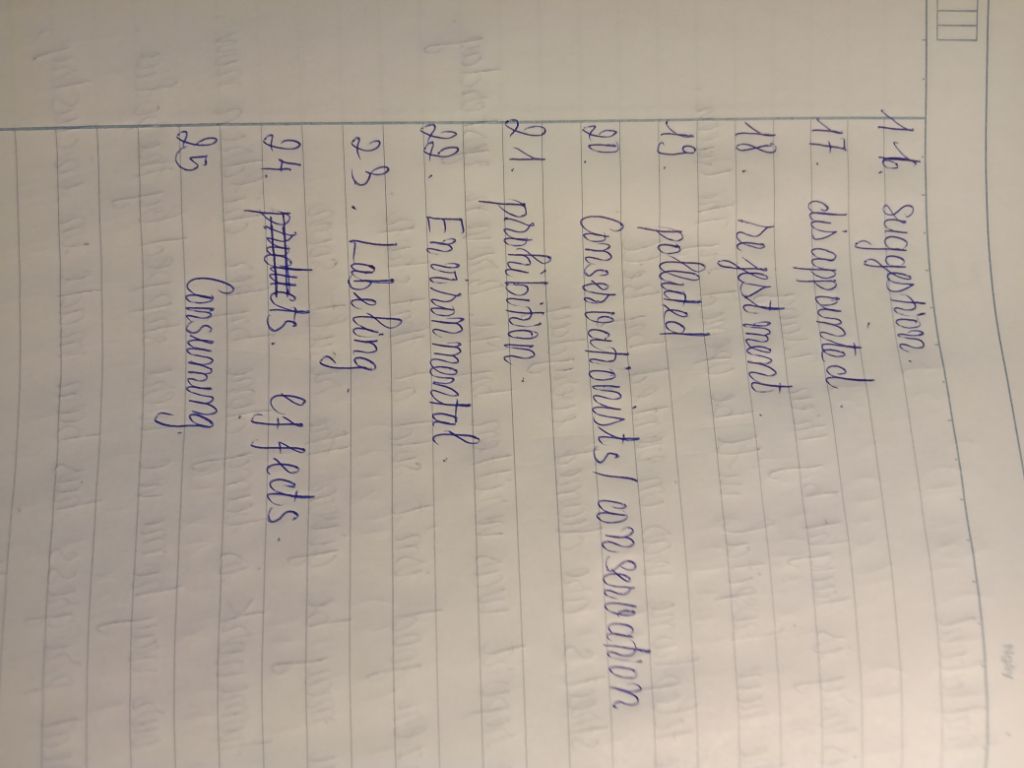 16. suggestion.
17. disappointed.
18. rejestment.
19. polluted
20. Conservationists/conservation
21. prohibition.
22. Environmental.
23. Labeling
24. products. effects.
25 Consuming.